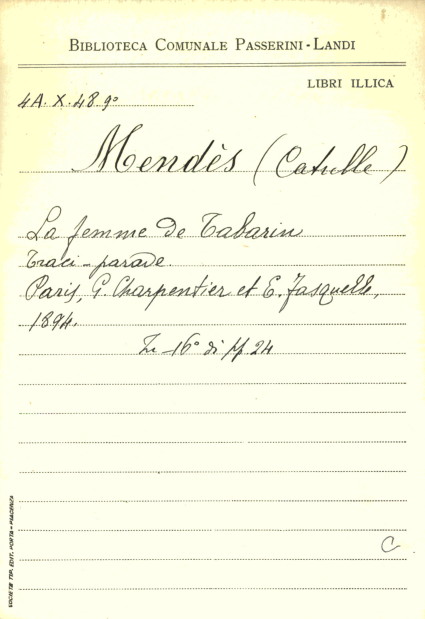 BIBLIOTECA COMUNALE PASSERINI-LANDI
LIBRI ILLICA
4A. X. 48.9º
Mendès (Catulle)
La femme de Tabarin
Traci-parade.
Paris, G. Charpentier et E. Fasquelle,
1894.
In 16º di pp 24
C
SOCIETÀ TIP. EDIT. PORTA - PIACENZA